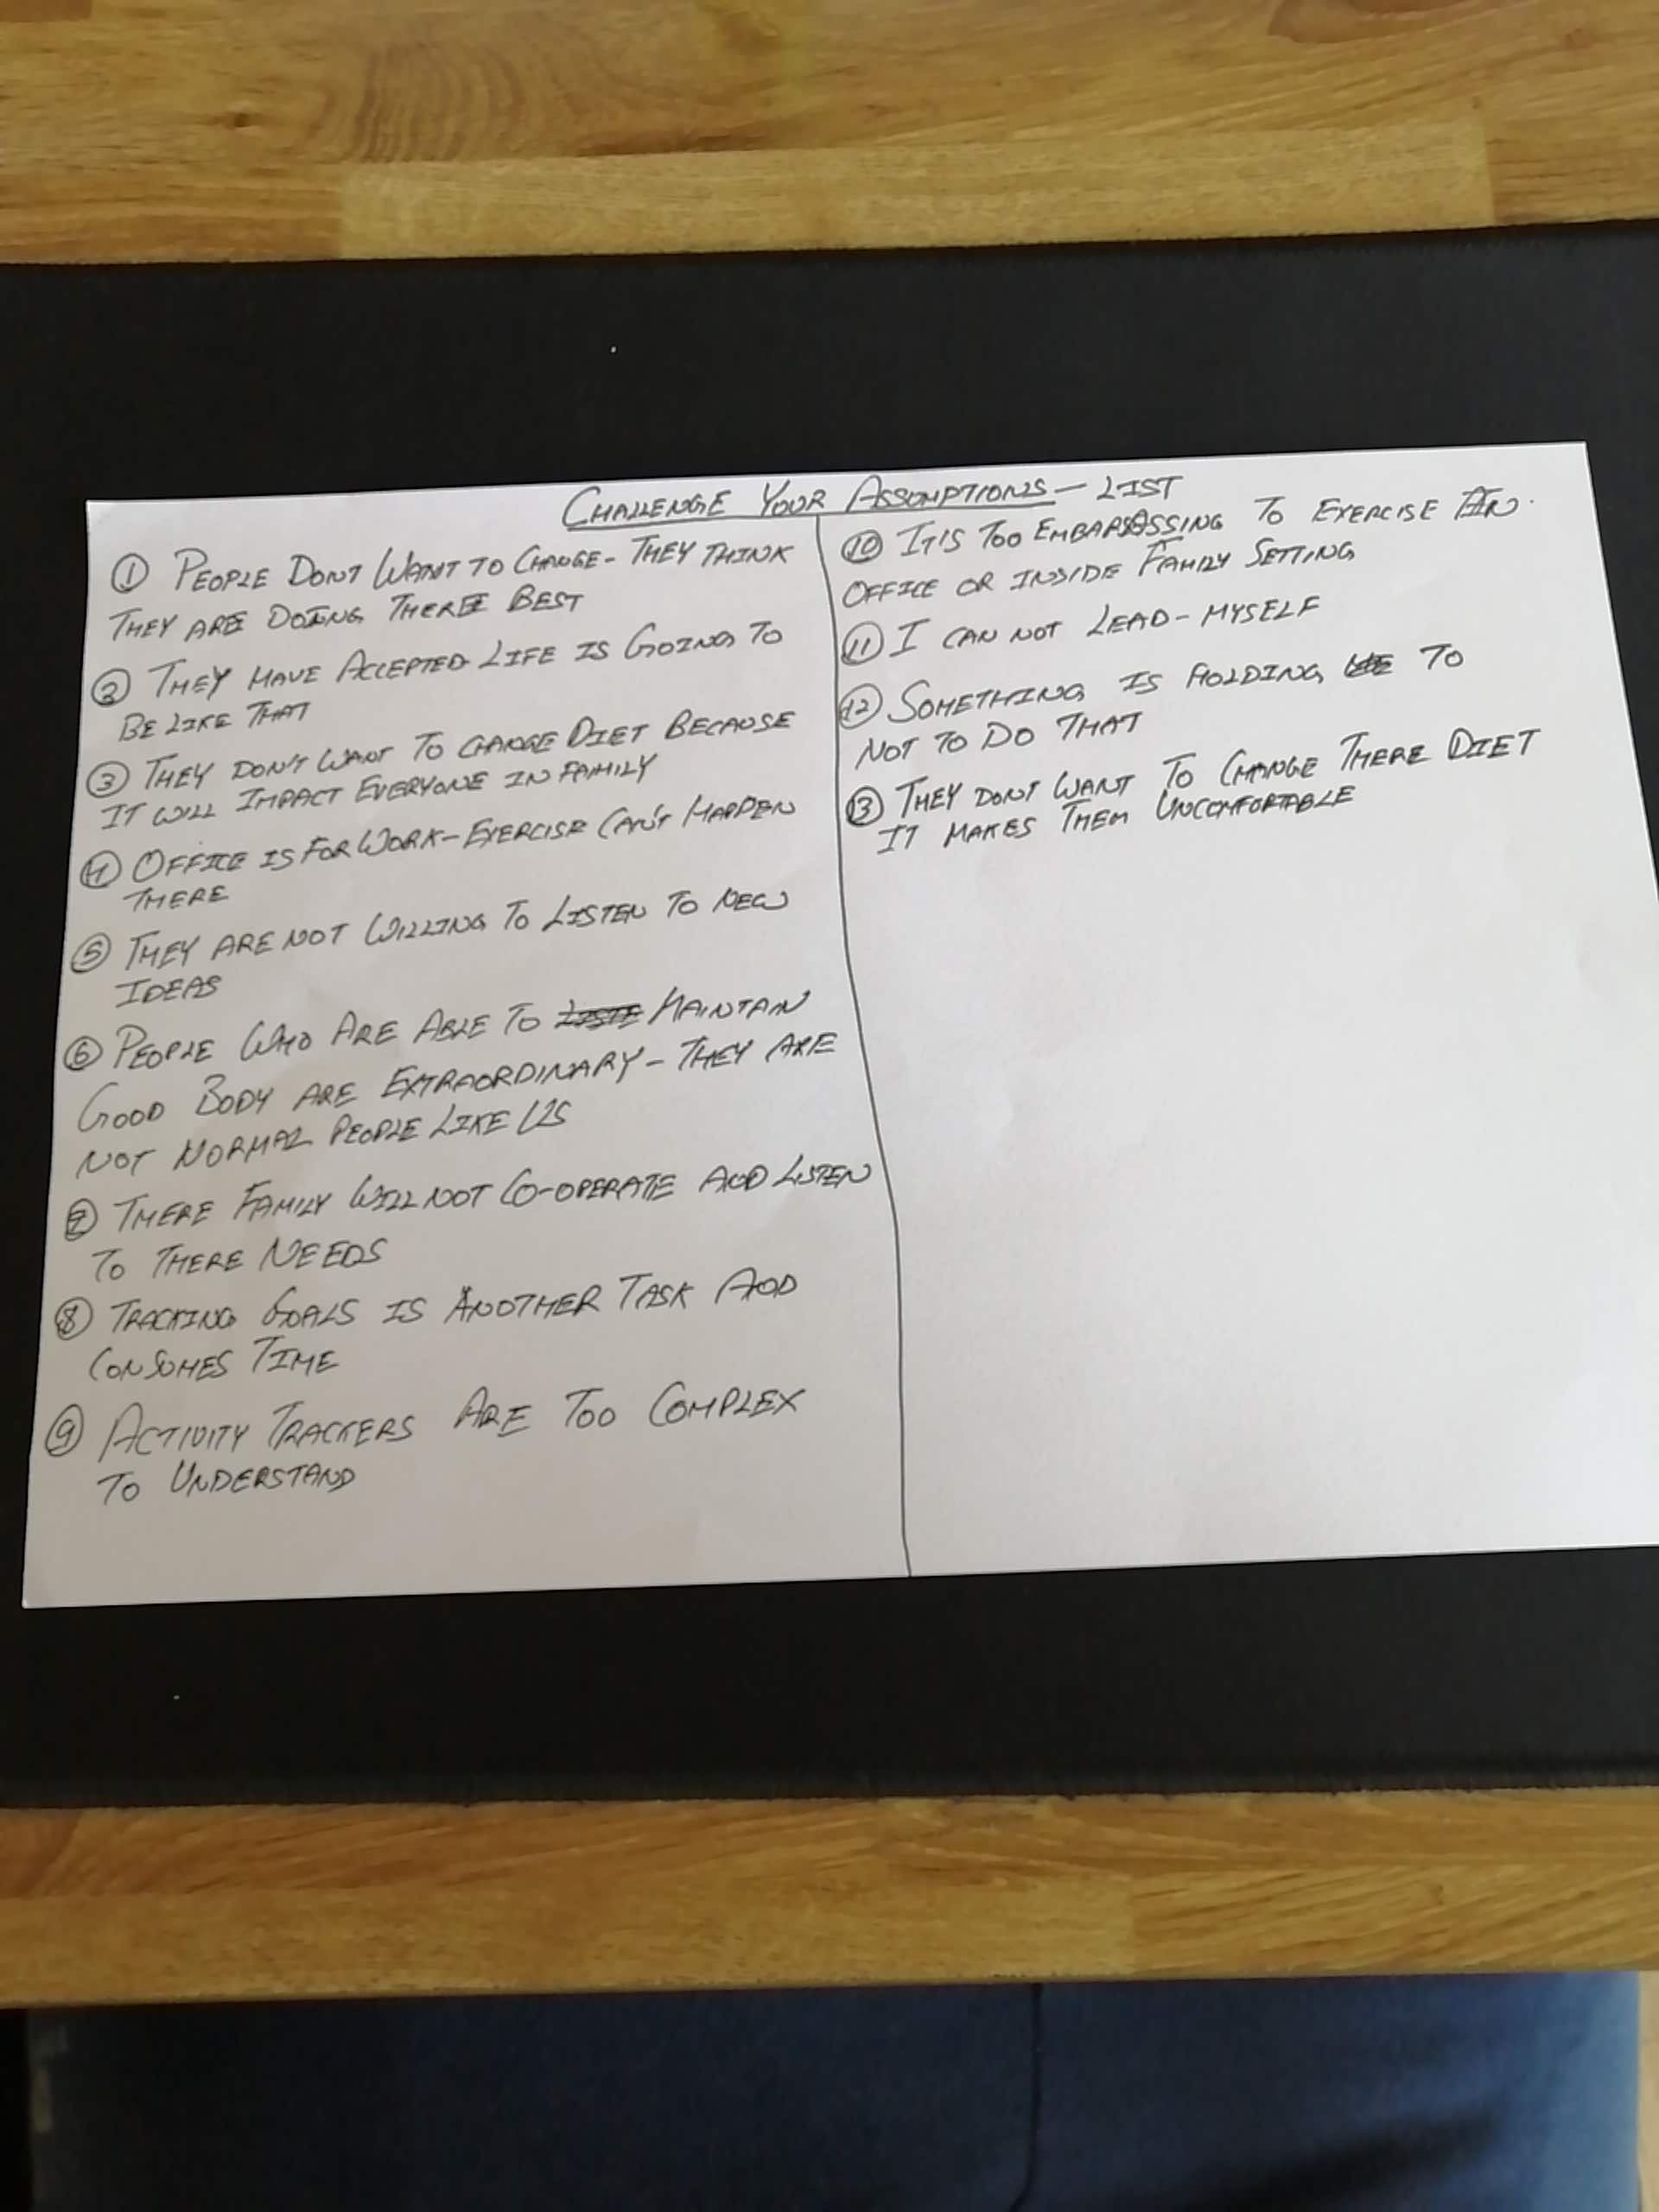 CHALLENGE YOUR ASSUMPTIONS - LIST
① PEOPLE DONT WANT TO CHANGE - THEY THINK
THEY ARE DOING THERE BEST
② THEY HAVE ACCEPTED LIFE IS GOING TO
BE LIKE THAT
③ THEY DON'T WANT TO CHANGE DIET BECAUSE
IT WILL IMPACT EVERYONE IN FAMILY
④ OFFICE IS FOR WORK - EXERCISE CAN'T HAPPEN
THERE
⑤ THEY ARE NOT WILLING TO LISTEN TO NEW
IDEAS
⑥ PEOPLE WHO ARE ABLE TO MAINTAIN
GOOD BODY ARE EXTRAORDINARY - THEY ARE
NOT NORMAL PEOPLE LIKE US
⑦ THERE FAMILY WILL NOT CO-OPERATE AND LISTEN
TO THERE NEEDS
⑧ TRACKING GOALS IS ANOTHER TASK AND
CONSUMES TIME
⑨ ACTIVITY TRACKERS ARE TOO COMPLEX
TO UNDERSTAND
⑩ IT'S TOO EMBARSASSING TO EXERCISE IN
OFFICE OR INSIDE FAMILY SETTING
⑪ I CAN NOT LEAD - MYSELF
⑫ SOMETHING IS HOLDING TO
NOT TO DO THAT
⑬ THEY DONT WANT TO CHANGE THERE DIET
IT MAKES THEM UNCOMFORTABLE